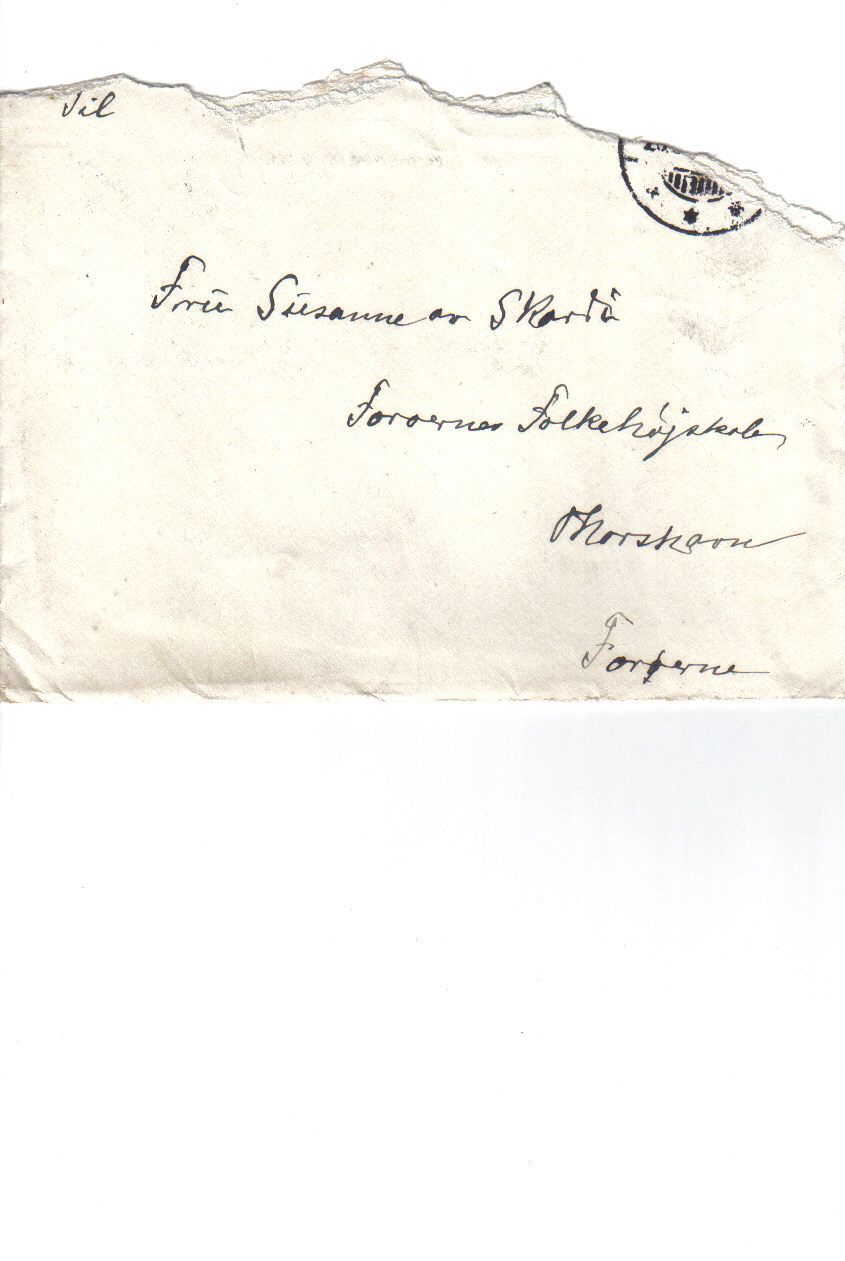 Til
Fru Susanne av Skardi
Færøernes Folkehøjskole
Thorshavn
Færøerne